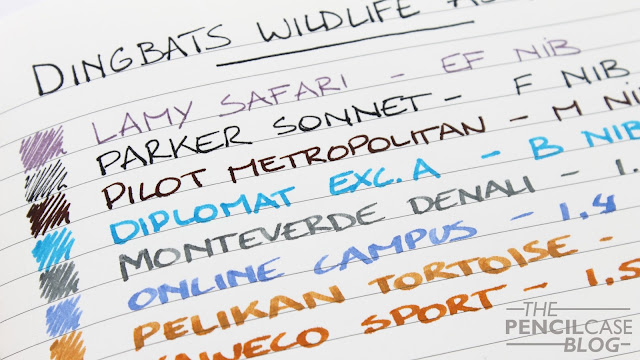 DINGBATS WILDLIFE
LAMY SAFARI - EF NIB
PARKER SONNET - F NIB
PILOT METROPOLITAN - M
DIPLOMAT EXC. A - B NIB
MONTEVERDE DENALI - 1.
ONLINE CAMPUS - 1.4
PELIKAN TORTOISE -
SPORT - 1.5
THE
PENCILCASE
BLOG